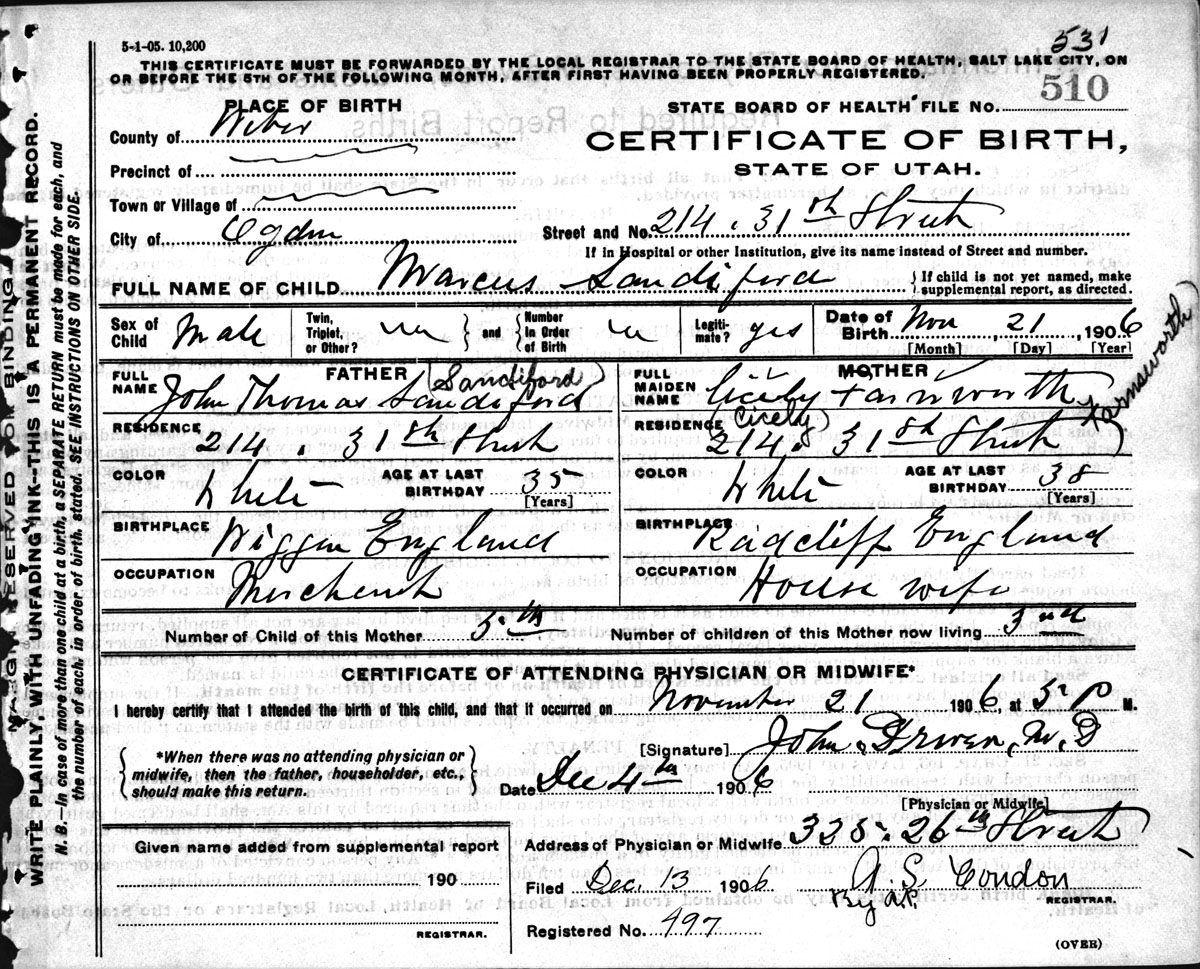 5-1-05. 10,200
531
THIS CERTIFICATE MUST BE FORWARDED BY THE LOCAL REGISTRAR TO THE STATE BOARD OF HEALTH, SALT LAKE CITY, ON
OR BEFORE THE 5TH OF THE FOLLOWING MONTH, AFTER FIRST HAVING BEEN PROPERLY REGISTERED.
PLACE OF BIRTH
STATE BOARD OF HEALTH FILE NO. 510
County of Weber
CERTIFICATE OF BIRTH,
Precinct of
STATE OF UTAH.
Town or Village of
City of Ogden
Street and No. 214. 31st Street
If in Hospital or other Institution, give its name instead of Street and number.
FULL NAME OF CHILD Marcus Sandiford
If child is not yet named, make supplemental report, as directed.
Sex of Child Male
Twin, Triplet, or Other?
and
Number in Order of Birth
Legitimate? yes
Date of Birth Nov 21, 1906
[Month] [Day] [Year]
FATHER
FULL NAME John Thomas Sandiford (Sandiford)
RESIDENCE 214. 31st Street
COLOR White
AGE AT LAST BIRTHDAY 35
[Years]
BIRTHPLACE Wiggan England
OCCUPATION Merchant
MOTHER
FULL MAIDEN NAME Cicely Farnworth
(Cicely Farnsworth)
RESIDENCE 214. 31st Street
COLOR White
AGE AT LAST BIRTHDAY 38
[Years]
BIRTHPLACE Radcliff England
OCCUPATION House wife
Number of Child of this Mother 5th
Number of children of this Mother now living 3
CERTIFICATE OF ATTENDING PHYSICIAN OR MIDWIFE*
I hereby certify that I attended the birth of this child, and that it occurred on November 21 1906, at 5 P M.
*When there was no attending physician or
midwife, then the father, householder, etc.,
should make this return.
[Signature] John Driver, M.D
Date Dec 4th 1906
[Physician or Midwife]
Address of Physician or Midwife 325. 26th Street
Given name added from supplemental report
190
REGISTRAR.
Filed Dec. 13 1906
A. S. Condon
By A.P.
REGISTRAR.
Registered No. 497
(OVER)
MARGIN RESERVED FOR BINDING
WRITE PLAINLY, WITH UNFADING INK--THIS IS A PERMANENT RECORD.
N. B.--In case of more than one child at a birth, a SEPARATE RETURN must be made for each, and
the number of each, in order of birth, stated. SEE INSTRUCTIONS ON OTHER SIDE.